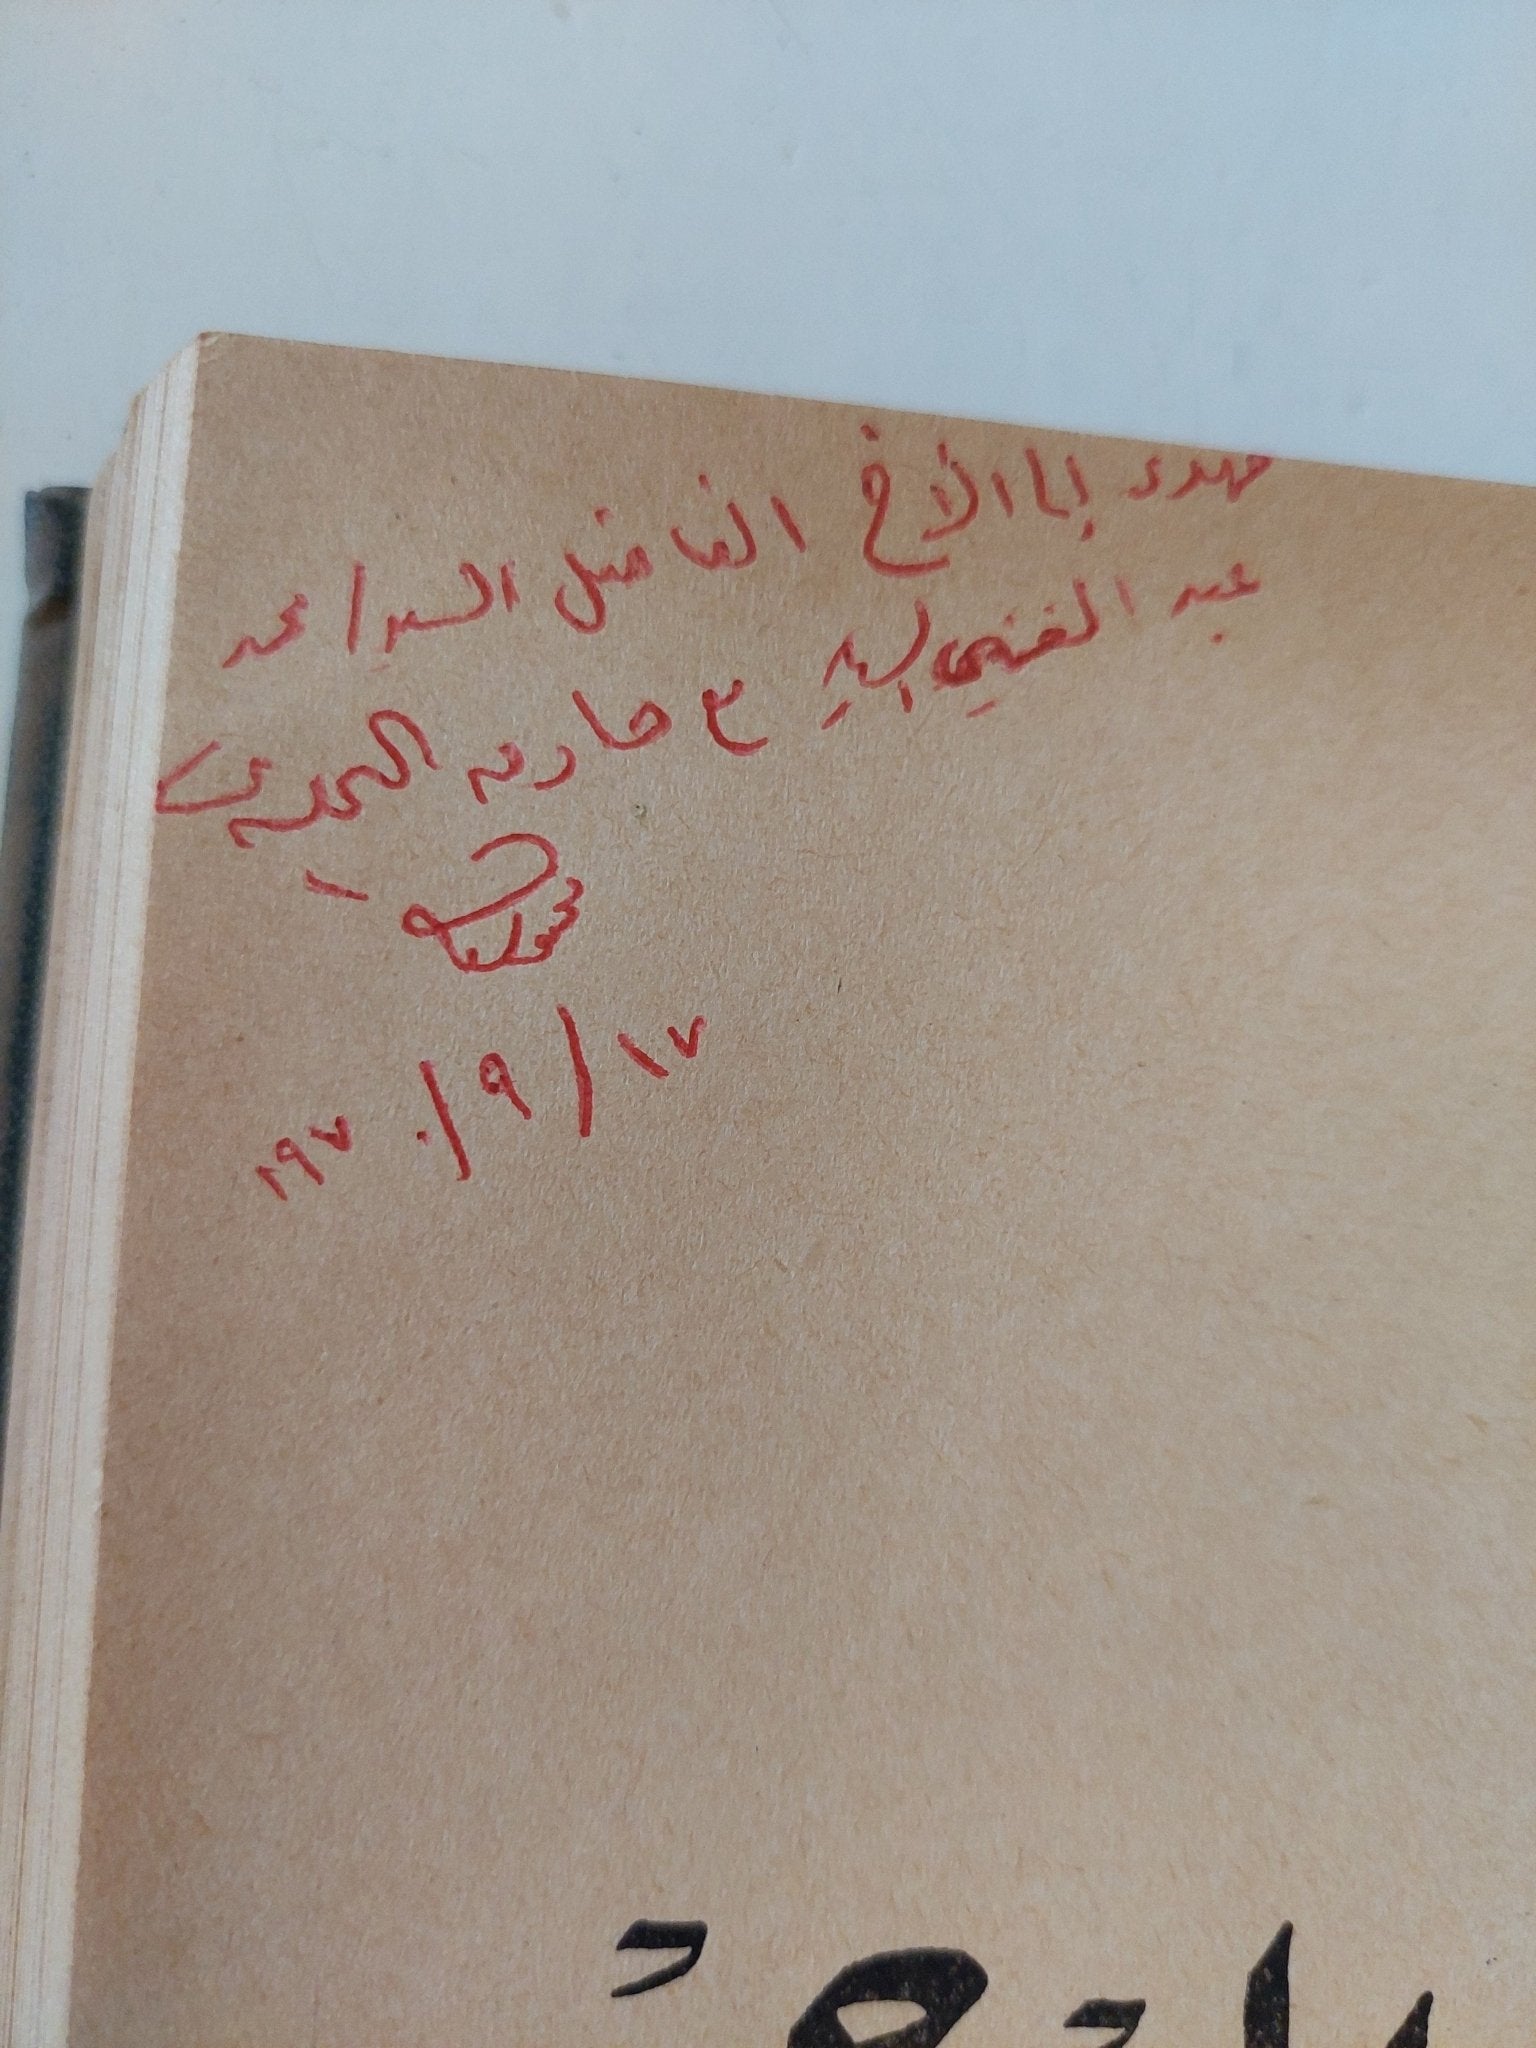 مهدى إلى الأخ الفاضل السيد / محمد
عبد الغني السيد مع صادق التحية
١٧ / ٩ / ١٩٧٠